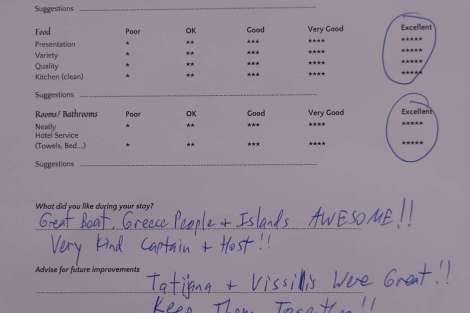 Suggestions
Food Poor OK Good Very Good Excellent
Presentation * ** *** **** *****
Variety * ** *** **** *****
Quality * ** *** **** *****
Kitchen (clean) * ** *** **** *****
Suggestions
Rooms/ Bathrooms Poor OK Good Very Good Excellent
Neatly * ** *** **** *****
Hotel Service
(Towels, Bed...) * ** *** **** *****
Suggestions
What did you like during your stay?
Great Boat, Greece People + Islands AWESOME!!
Very Kind Captain + Host!!
Advise for future improvements
Tatijana + Vissilis Were Great!!
Keep Them Together!!